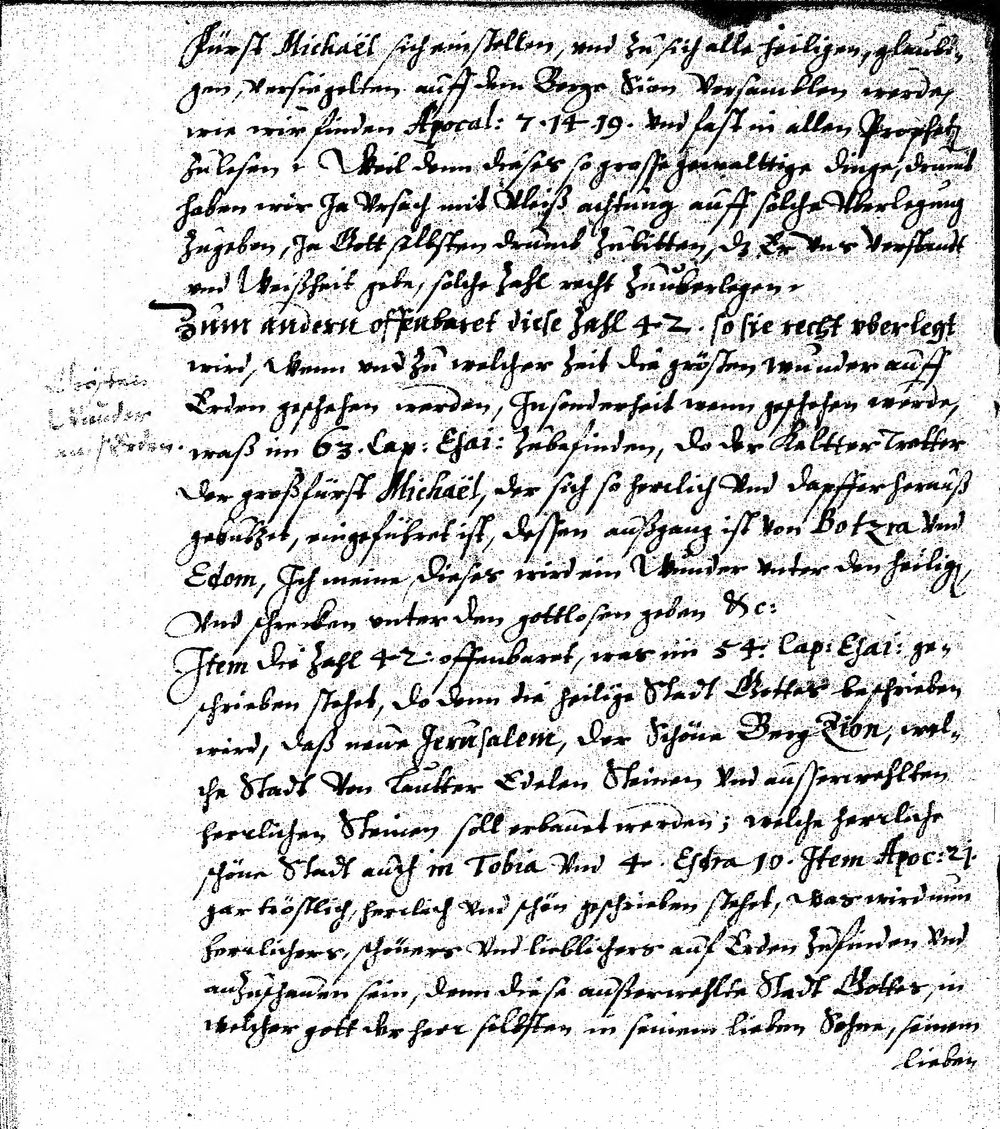 Fürst Michaël sich einstellen, vnd zu sich alle heiligen, glaubi-
gen, versiegelten auff dem Berge Sion versamblen werde,
wie wir finden Apocal: 7. 14. 19. vnd fast in allen Prophetē
zu lesen. Weil denn dieses so grosse gewalttige dinge, drumb
haben wir Ja vrsach mit Vleiß achtung auff solche Vberlegung
zu geben, Ja Gott selbsten drumb zubitten, dz Er vns verstandt
vnd Weißheit gebe, solche Zahl recht zuüberlegen.
Zum andern offenbaret diese Zahl 42. so sie recht vberlegt
wird, Wenn vnd zu welcher Zeit die grösten wunder auff
Erden geschehen werden, Insonderheit wenn geschehen werde,
Grösten
Wunder
auf Erden.
waß im 63. Cap: Esai: zubefinden, do der Keltter Tretter
der großfürst Michaël, der sich so herrlich vnd dapffer herauß
gebutzet, eingeführet ist, dessen außgang ist von Botzra vnd
Edom, Ich meine, dieses wird ein Wunder vnter den heiligē,
Vnd schrecken vnter den gottlosen geben &c:
Item die Zahl 42: offenbaret, was im 54: Cap: Esai: ge-
schrieben stehet, do denn die heilige Stadt Gottes beschrieben
wird, daß neue Jerusalem, der Schöne Berg Zion, wel-
che Stadt von Lautter Edelen Steinen vnd ausserwehlten
herrlichen Steinen soll erbauet werden; welche herrliche
schöne Stadt auch in Tobia vnd 4. Esdra 10. Item Apoc: 21.
gar tröstlich, herrlich vnd schön geschrieben stehet, Was wird nun
herrlichers, schöners vnd lieblichers auf Erden zufinden vnd
anzuschauen sein, denn diese außerwehlte Stadt Gottes, in
welcher gott der herr selbsten in seinem lieben Sohne, seinem
lieben